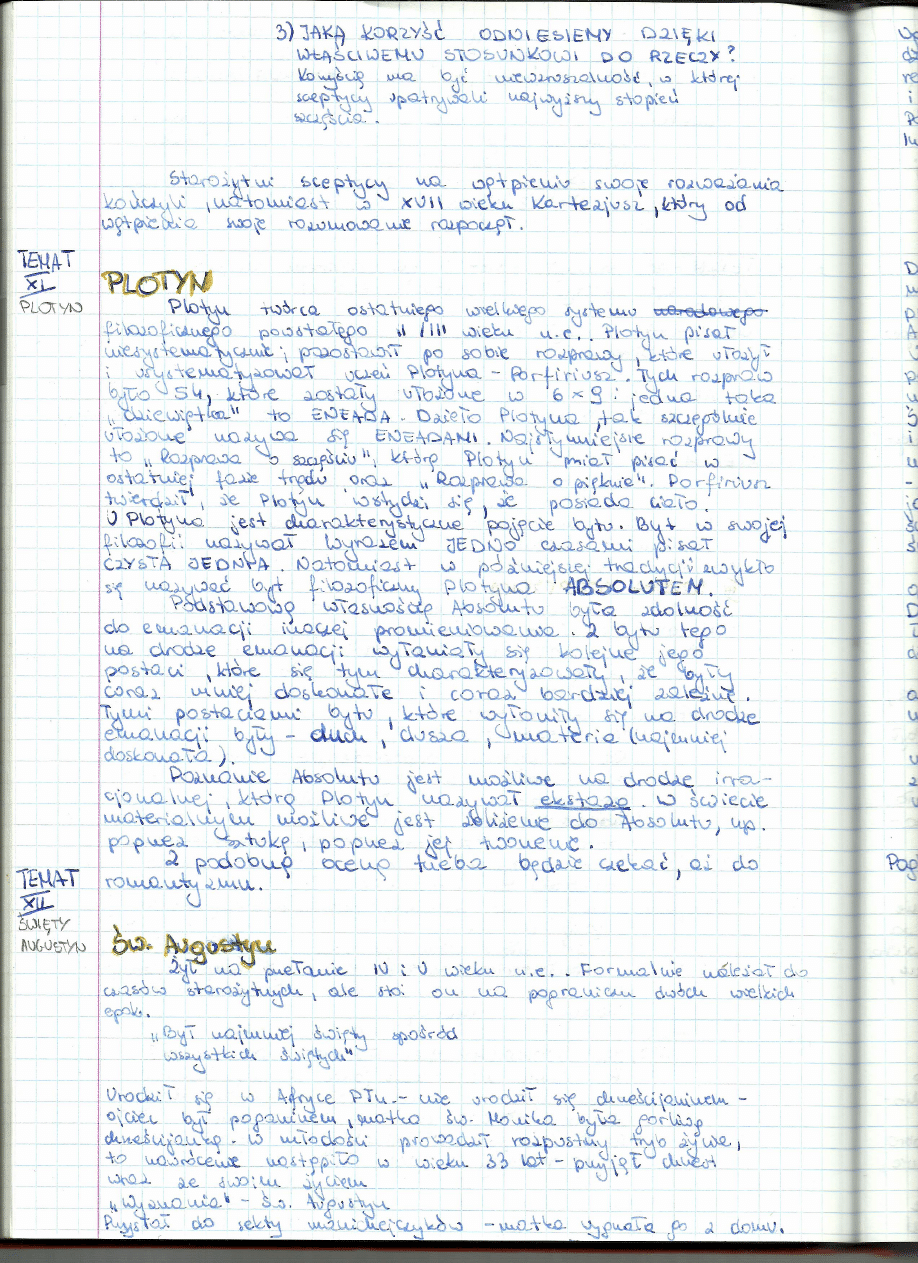 3) JAKĄ KORZYŚĆ ODNIESIEMY DZIĘKI
WŁAŚCIWEMU STOSUNKOWI DO RZECZY?
Korzyścią ma być niewzruszalność, w której
sceptycy upatrywali najwyższy stopień
szczęścia.
Starożytni sceptycy na wątpieniu swoje rozważania
kończyli, natomiast w XVII wieku Kartezjusz, który od
wątpienia swoje rozumowanie rozpoczął.
TEMAT
XI
PLOTYN
PLOTYN
Plotyn twórca ostatniego wielkiego systemu narodowego
filozoficznego powstałego II/III wieku n.e.. Plotyn pisał
niesystematycznie; pozostawił po sobie rozprawy, które ułożył
i usystematyzował uczeń Plotyna - Porfiriusz. Tych rozpraw
było 54, które zostały ułożone w 6 x 9 i jedna taka
"dziewiątka" to ENEADA. Dzieło Plotyna, tak szczególnie
ułożone nazywa się ENEADAMI. Najsłynniejsze rozprawy
to "Rozprawa o szczęściu", którą Plotyn miał pisać w
ostatniej fazie trądu oraz "Rozprawa o pięknie". Porfiriusz
twierdził, że Plotyn wstydzi się, że posiada ciało.
U Plotyna jest charakterystyczne pojęcie bytu. Byt w swojej
filozofii nazywał wyrazem JEDNO czasami pisał
CZYSTA JEDNIA. Natomiast w późniejszej tradycji zwykło
się nazywać byt filozoficzny Plotyna ABSOLUTEM.
Podstawową własnością Absolutu była zdolność
do emanacji inaczej promieniowania. Z bytu tego
na drodze emanacji wyłaniały się kolejne jego
postaci, które się tym charakteryzowały, że były
coraz mniej doskonałe i coraz bardziej zależne.
Tymi postaciami bytu, które wyłoniły się na drodze
emanacji były - duch, dusza, materia (najmniej
doskonała).
Poznanie Absolutu jest możliwe na drodze irra-
cjonalnej, którą Plotyn nazywał ekstazą. W świecie
materialnym możliwe jest zbliżenie do Absolutu, np.
poprzez sztukę, poprzez jej tworzenie.
Z podobną oceną trzeba będzie czekać, aż do
romantyzmu.
TEMAT
XII
ŚWIĘTY
AUGUSTYN
Św. Augustyn
Żył na przełomie IV i V wieku n.e.. Formalnie należał do
czasów starożytnych, ale stoi on na pograniczu dwóch wielkich
epok.
"Był najmniej święty spośród
wszystkich świętych"
Urodził się w Afryce Płn. - nie urodził się chrześcijaninem -
ojciec był poganinem, matka św. Monika była gorliwą
chrześcijanką. W młodości prowadził rozpustny tryb życia,
to nawrócenie nastąpiło w wieku 33 lat - przyjął chrzest
wraz ze swoim życiem
"Wyznania" - św. Augustyn
Przystał do sekty manichejczyków - matka wygnała go z domu.